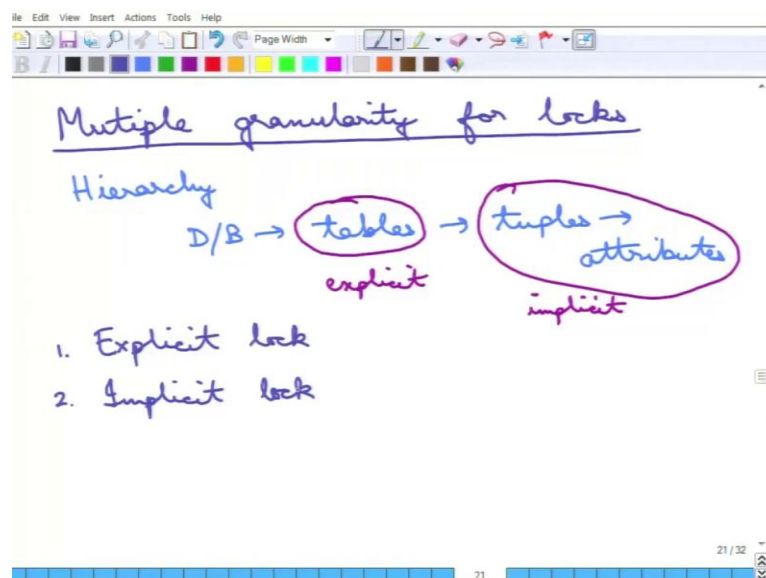 ile Edit View Insert Actions Tools Help
Page Width
Mutiple granularity for locks
Hierarchy
D/B → tables → tuples →
attributes
explicit
implicit
1. Explicit lock
2. Implicit lock
21 / 32
21